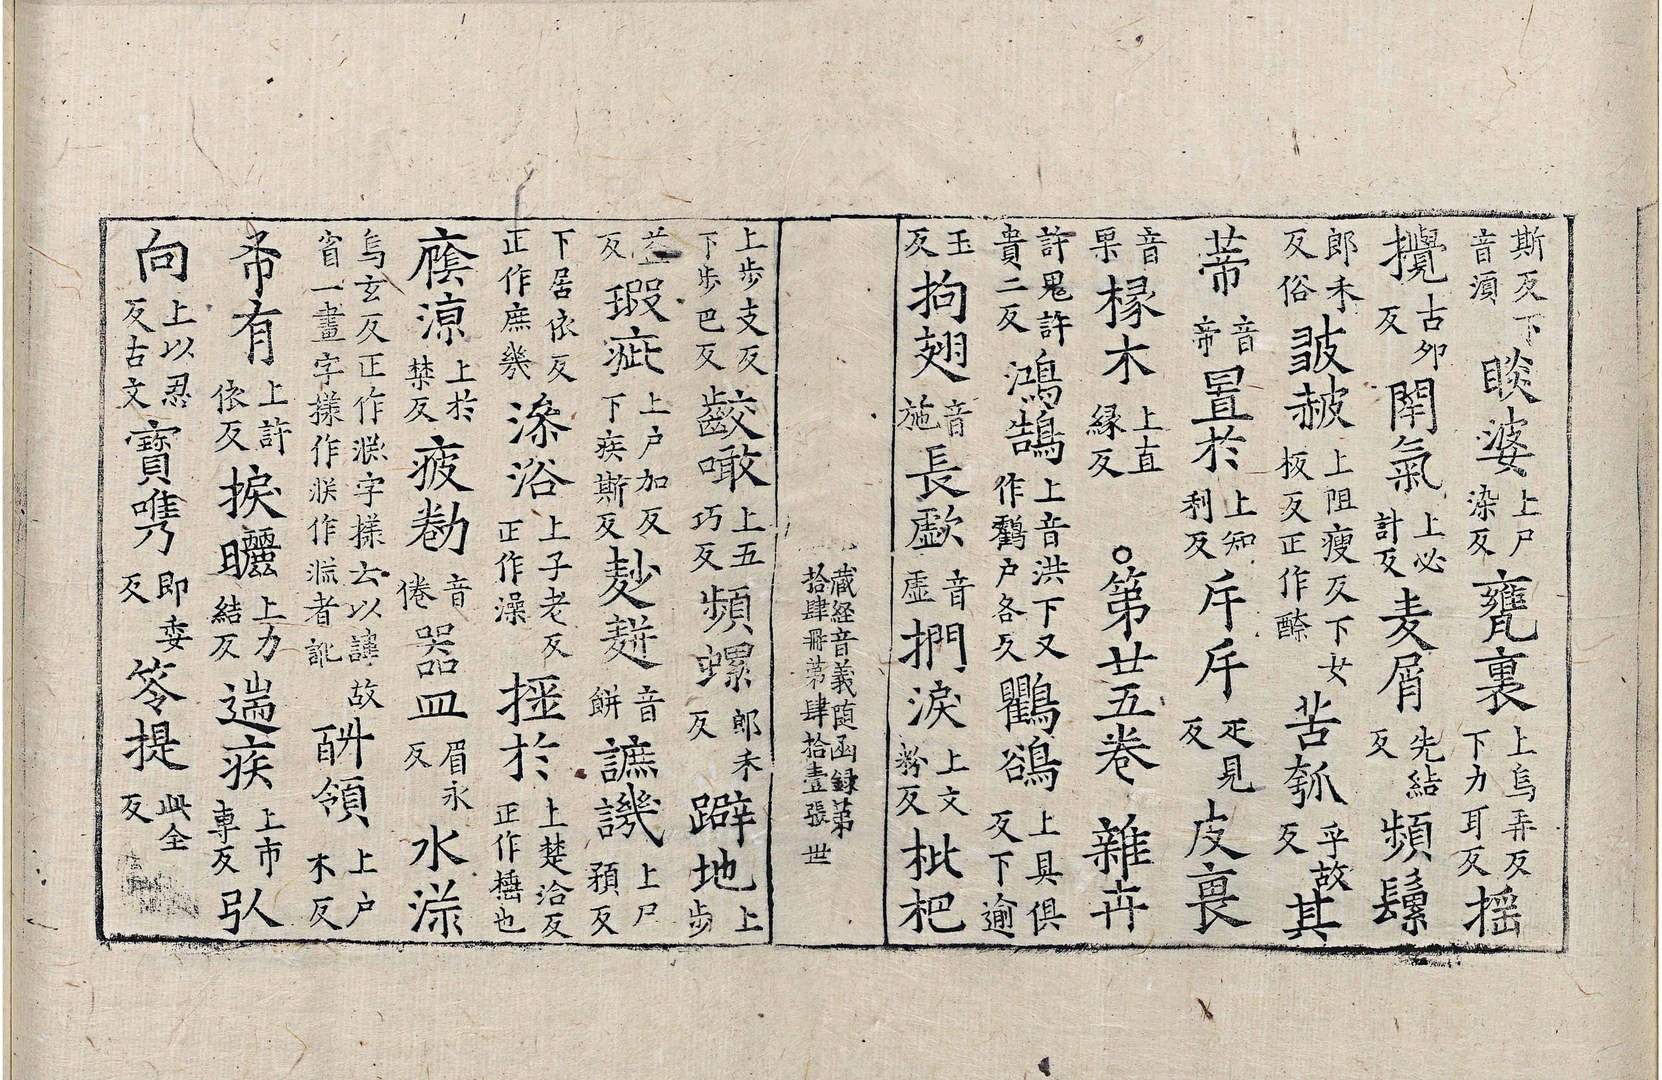 斯反下音湏睒婆上尸染反甕裏上烏弄反下力耳反摇
攪古夘反閈氣上必計反麦屑先結反頻鬘
郎禾反俗皷赧上阻瘦反下女板反正作䤘苦瓠乎故反其
蒂音帝置於上知利反斤斤疋見反皮裹
音果椽木上直縁反○第廿五卷 雜卉
許鬼許貴二反鴻鵠上音洪下又作鸖戶各反鸜鵒上具俱反下逾
玉反拘翅音施長歔音虛捫淚上文粉反枇杷
藏経音義随函録第
拾肆冊第肆拾壹張 世
上步支反下步巴反齩噉上五巧反頻螺郎禾反躃地上步
益反瑕疵上戶加反下疾斯反麨䴵音餅譏上尸預反
下居依反正作庶幾澡浴上子老反正作澡於上楚洽反正作也
䕃凉上於禁反疲勌音倦器皿眉永反水漾
烏玄反正作渁字㨾云以諱故省一畫字㨾作者訛頷上戶木反
希有上許依反捩曬上力結反遄疾上市專反弘
向上以忍反古文寶嶲即委反筌提此全反